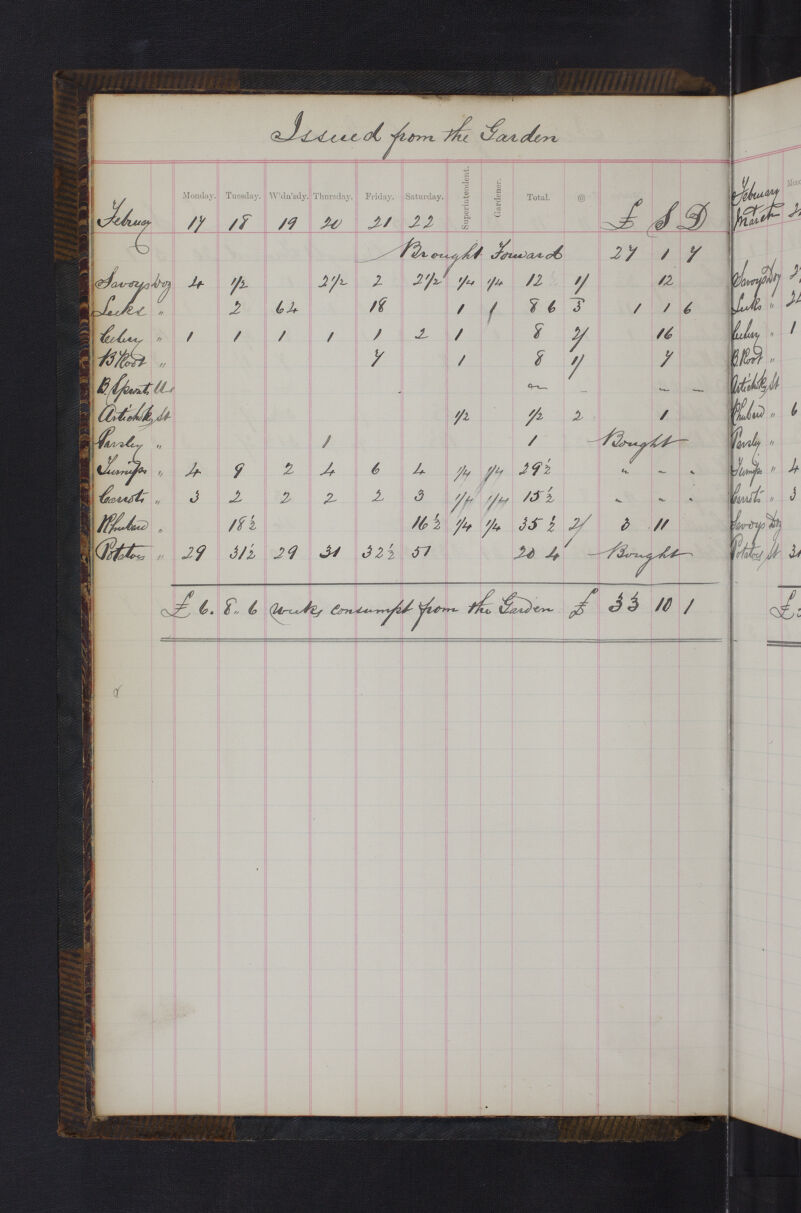 Issued from the Garden
Monday. Tuesday. W'dn'sdy. Thursday. Friday. Saturday. Superintendent. Gardener. Total. @
February 17 18 19 20 21 22 £ S D
Brought Forward 27 1 7
Savoys Doz 4 1/2 2 1/2 2 2 1/2 1/4 1/4 12 1/ 12
Leeks " 2 64 18 1 1 86 3 1 1 6
Celery " 1 1 1 1 1 2 1 8 2/ 16
B Root " 7 1 8 1/ 7
B/Sprouts - - -
Artichk St 1/2 1/2 2 1
Parsley " 1 1 Bought
Turnips " 4 9 2 4 6 4 1/4 1/4 29 1/2 " - -
Carrots " 3 2 2 2 2 3 1/4 1/4 15 1/2 " - -
Rhubard " 18 1/2 16 1/2 1/4 1/4 35 1/2 2/ 3 11
Potatoes " 29 31 1/2 29 31 32 1/2 51 20 4 Bought
£ 6. 8 " 6 weeks consumpt from the Garden £ 33 10 1
February
March
Savoys Doz
Leeks "
Celery " 1
B. Root "
Artichk St
Rhubard " 6
Parsley "
Turnips " 4
Carrots " 3
Savoys Doz
Potatoes St
£